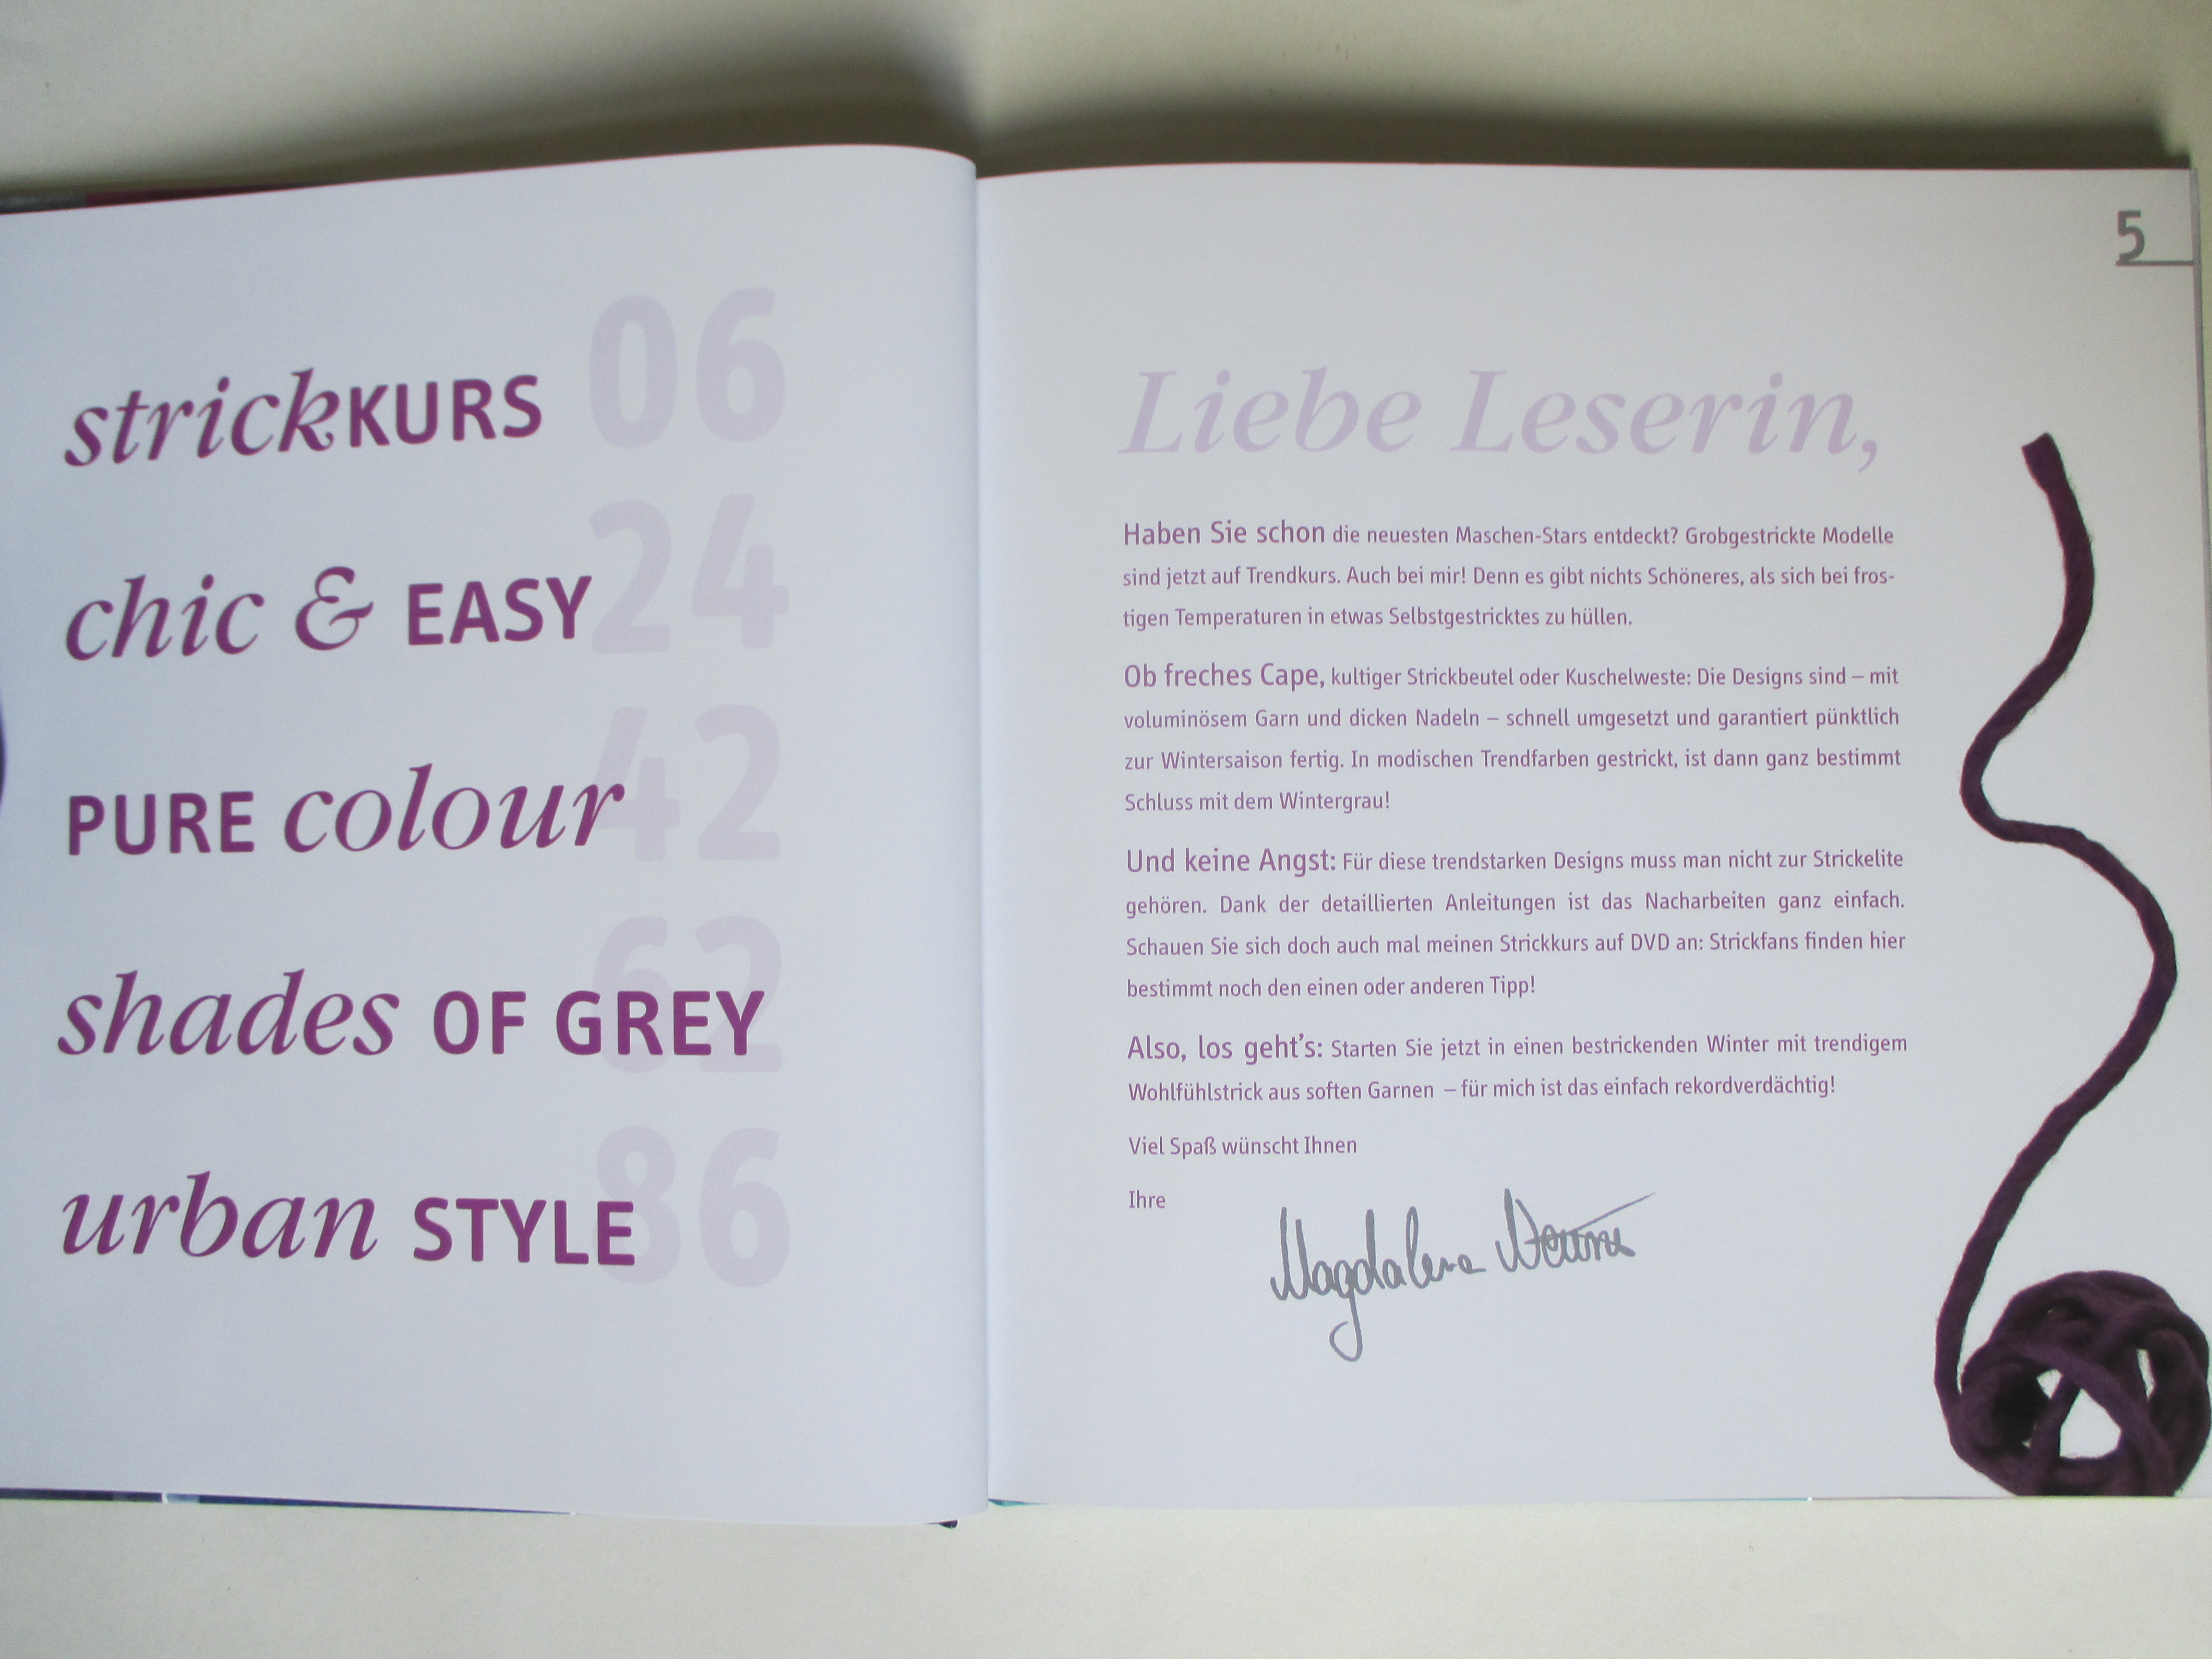 strickKURS 06
chic & EASY 24
PURE colour 42
shades OF GREY 62
urban STYLE 86
5
Liebe Leserin,
Haben Sie schon die neuesten Maschen-Stars entdeckt? Grobgestrickte Modelle
sind jetzt auf Trendkurs. Auch bei mir! Denn es gibt nichts Schöneres, als sich bei fros-
tigen Temperaturen in etwas Selbstgestricktes zu hüllen.
Ob freches Cape, kultiger Strickbeutel oder Kuschelweste: Die Designs sind – mit
voluminösem Garn und dicken Nadeln – schnell umgesetzt und garantiert pünktlich
zur Wintersaison fertig. In modischen Trendfarben gestrickt, ist dann ganz bestimmt
Schluss mit dem Wintergrau!
Und keine Angst: Für diese trendstarken Designs muss man nicht zur Strickelite
gehören. Dank der detaillierten Anleitungen ist das Nacharbeiten ganz einfach.
Schauen Sie sich doch auch mal meinen Strickkurs auf DVD an: Strickfans finden hier
bestimmt noch den einen oder anderen Tipp!
Also, los geht's: Starten Sie jetzt in einen bestrickenden Winter mit trendigem
Wohlfühlstrick aus soften Garnen – für mich ist das einfach rekordverdächtig!
Viel Spaß wünscht Ihnen
Ihre
Magdalena